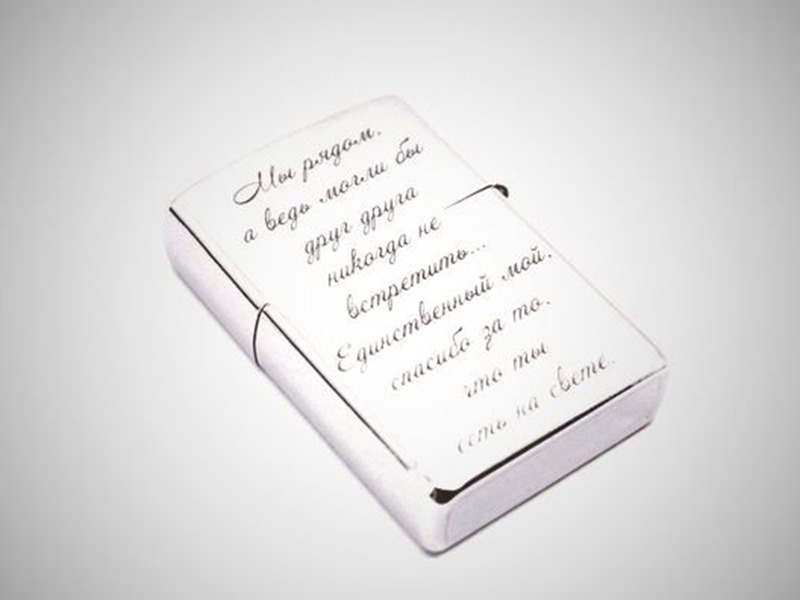 Мы рядом,
а ведь могли бы
друг друга
никогда не
встретить...
Единственный мой,
спасибо за то,
что ты
есть на свете.